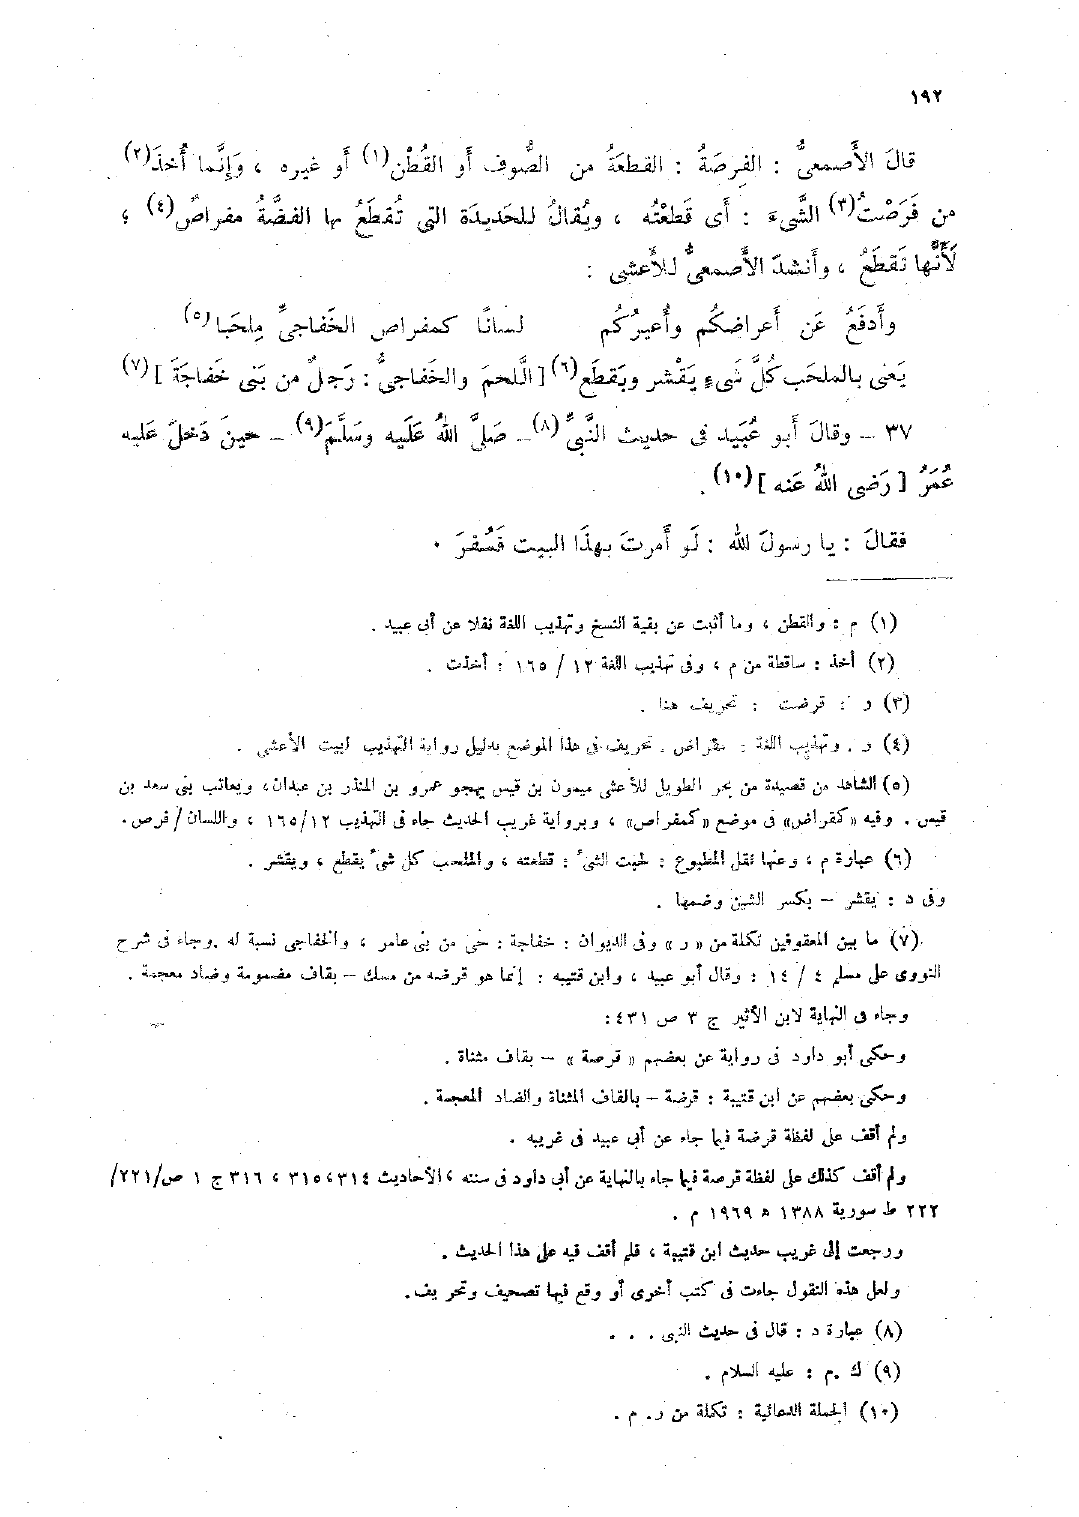 ١٩٢
قالَ الأَصمعىُّ : الفِرصَةُ : القطعَةُ من الصُّوف أَو القُطْن(١) أَو غيره ، وَإنَّما أُخذَ(٢)
من فَرَصْتُ(٣) الشَّىءَ : أَى قَطعْتُه ، ويُقالُ للحَديدَة التى تُقطَعُ بها الفضَّةُ مفراصٌ(٤) ؛
لأَنَّها تَقطَعُ ، وأَنشدَ الأَصمعىُّ للأَعشى :
وأَدفَعُ عَن أَعراضكُم وأُعيرُكُم لسانًا كمفراص الخَفاجىِّ مِلحَبا(٥)
يَعنى بالملحَب كُلَّ شَىءٍ يَقْشر ويَقطَع(٦) [ الَّلحمَ والخَفاجىُّ : رَجلٌ من بَنى خَفاجَةَ ](٧)
٣٧ – وقالَ أَبو عُبَيد فى حديث النَّبىِّ(٨) – صَلىَّ اللهُ عَلَيه وسَلَّمَ(٩) – حينَ دَخلَ عَليه
عُمَرُ [ رَضى اللهُ عَنه ](١٠) .
فقالَ : يا رسولَ الله : لَو أَمرتَ بهذَا البيت فَسُفرَ .
(١) م : والقطن ، وما أثبت عن بقية النسخ وتهذيب اللغة نقلا عن أبى عبيد .
(٢) أخذ : ساقطة من م ، وفى تهذيب اللغة ١٢ / ١٦٥ : أخذت .
(٣) ر : قرضت : تحريف هنا .
(٤) ر . وتهذيب اللغة : مقراض . تحريف فى هذا الموضع بدليل رواية التهذيب لبيت الأعشى .
(٥) الشاهد من قصيدة من بحر الطويل للأعشى ميمون بن قيس يهجو عمرو بن المنذر بن عبدان، ويعاتب بنى سعد بن
قيس . وفيه «كمقراض» فى موضع «كمفراص» ، وبرواية غريب الحديث جاء فى التهذيب ١٦٥/١٢ ، واللسان / فرص .
(٦) عبارة م ، وعنها نقل المطبوع : لحبت الشئ : قطعته ، والملحب كل شئ يقطع ، ويقشر .
وفى د : يقشر – بكسر الشين وضمها .
(٧) ما بين المعقوفين تكلة من « ر » وفى الديوان : خفاجة : حى من بنى عامر ، والخفاجى نسبة له .وجاء فى شرح
النووى على مسلم ٤ / ١٤ : وقال أبو عبيد ، وابن قتيبه : إنما هو قرضه من مسك – بقاف مضمومة وضاد معجمة .
وجاء فى النهاية لابن الأثير ج ٣ ص ٤٣١:
وحكى أبو داود فى رواية عن بعضهم « قرصة » – بقاف مثناة .
وحكى بعضهم عن ابن قتيبة : قرضة – بالقاف المثناة والضاد المعجمة .
ولم أقف على لفظة قرضة فيما جاء عن أبى عبيد فى غريبه .
ولم أقف كذلك على لفظة قرصة فيما جاء بالنهاية عن أبى داود فى سننه ، الأحاديث ٣١٤ ، ٣١٥ ، ٣١٦ ج ١ ص/٢٢١/
٢٢٢ ط سورية ١٣٨٨ ه ١٩٦٩ م .
ورجعت إلى غريب حديث ابن قتيبة ، فلم أقف فيه على هذا الحديث .
ولعل هذه النقول جاءت فى كتب أخرى أو وقع فيها تصحيف وتحريف.
(٨) عبارة د : قال فى حديث النبى . . .
(٩) ك .م : عليه السلام .
(١٠) الجملة الدعائية : تكلة من ر. م .